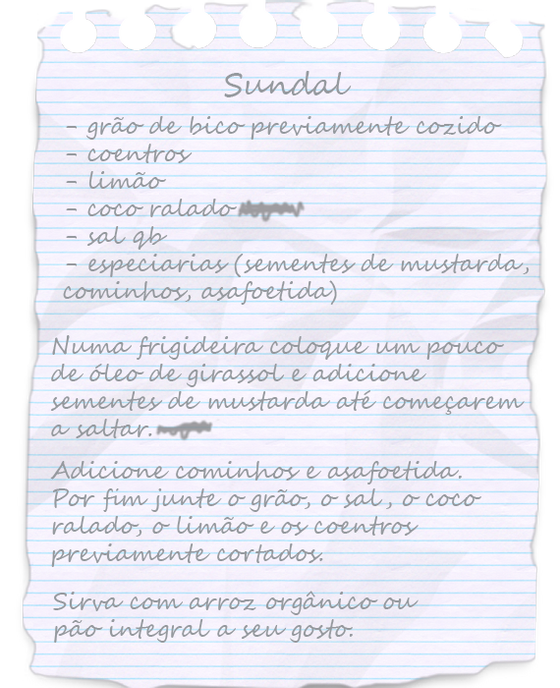 Sundal
- grão de bico previamente cozido
- coentros
- limão
- coco ralado
- sal qb
- especiarias (sementes de mustarda,
cominhos, asafoetida)
Numa frigideira coloque um pouco
de óleo de girassol e adicione
sementes de mustarda até começarem
a saltar.
Adicione cominhos e asafoetida.
Por fim junte o grão, o sal , o coco
ralado, o limão e os coentros
previamente cortados.
Sirva com arroz orgânico ou
pão integral a seu gosto.